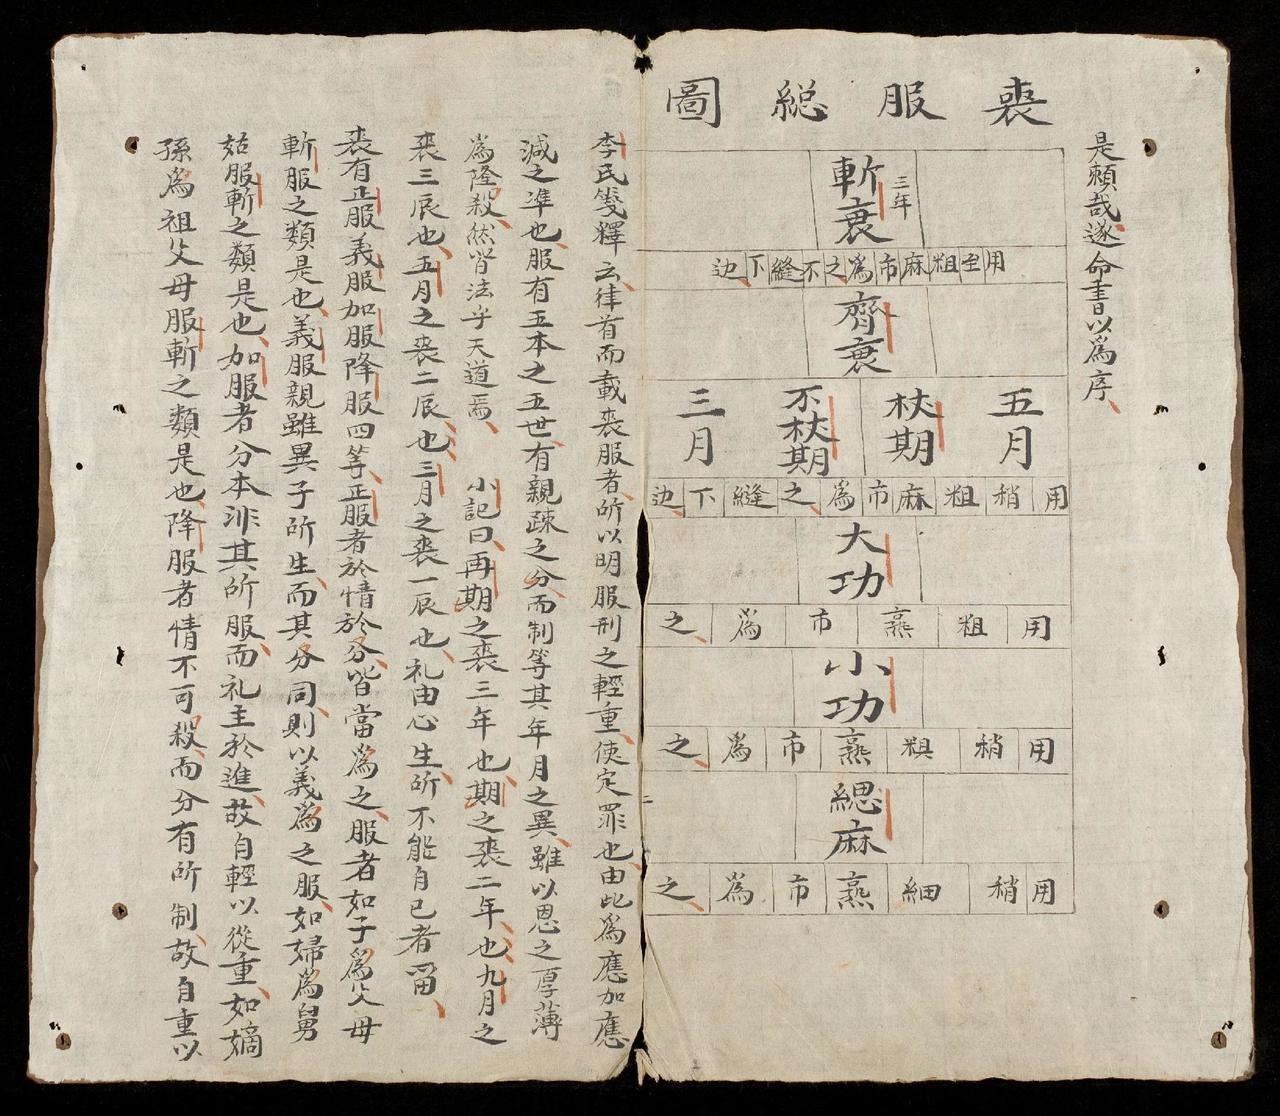 是頼哉遂命書以為序
喪服総圖
斬衰 三年
用至粗麻布為之不縫下边
齊衰
五月 杖期 不杖期 三月
用稍粗麻布為之縫下边
大功
用粗熟布為之
小功
用稍粗熟布為之
緦麻
用稍細熟布為之
李氏箋釋云律首而載喪服者所以明服刑之輕重使定罪也由此為應加應
減之準也服有五本之五世有親疎之分而制等其年月之異雖以恩之厚薄
為隆殺然皆法乎天道焉 小記曰再期之喪三年也期之喪二年也九月之
喪三辰也五月之喪二辰也三月之喪一辰也礼由心生所不能自已者畱
喪有正服義服加服降服四等正服者於情於分皆當為之服者如子為父母
斬服之類是也義服親雖異子所生而其分同則以義為之服如婦為舅
姑服斬之類是也加服者分本非其所服而礼主於進故自輕以從重如嫡
孫為祖父母服斬之類是也降服者情不可殺而分有所制故自重以